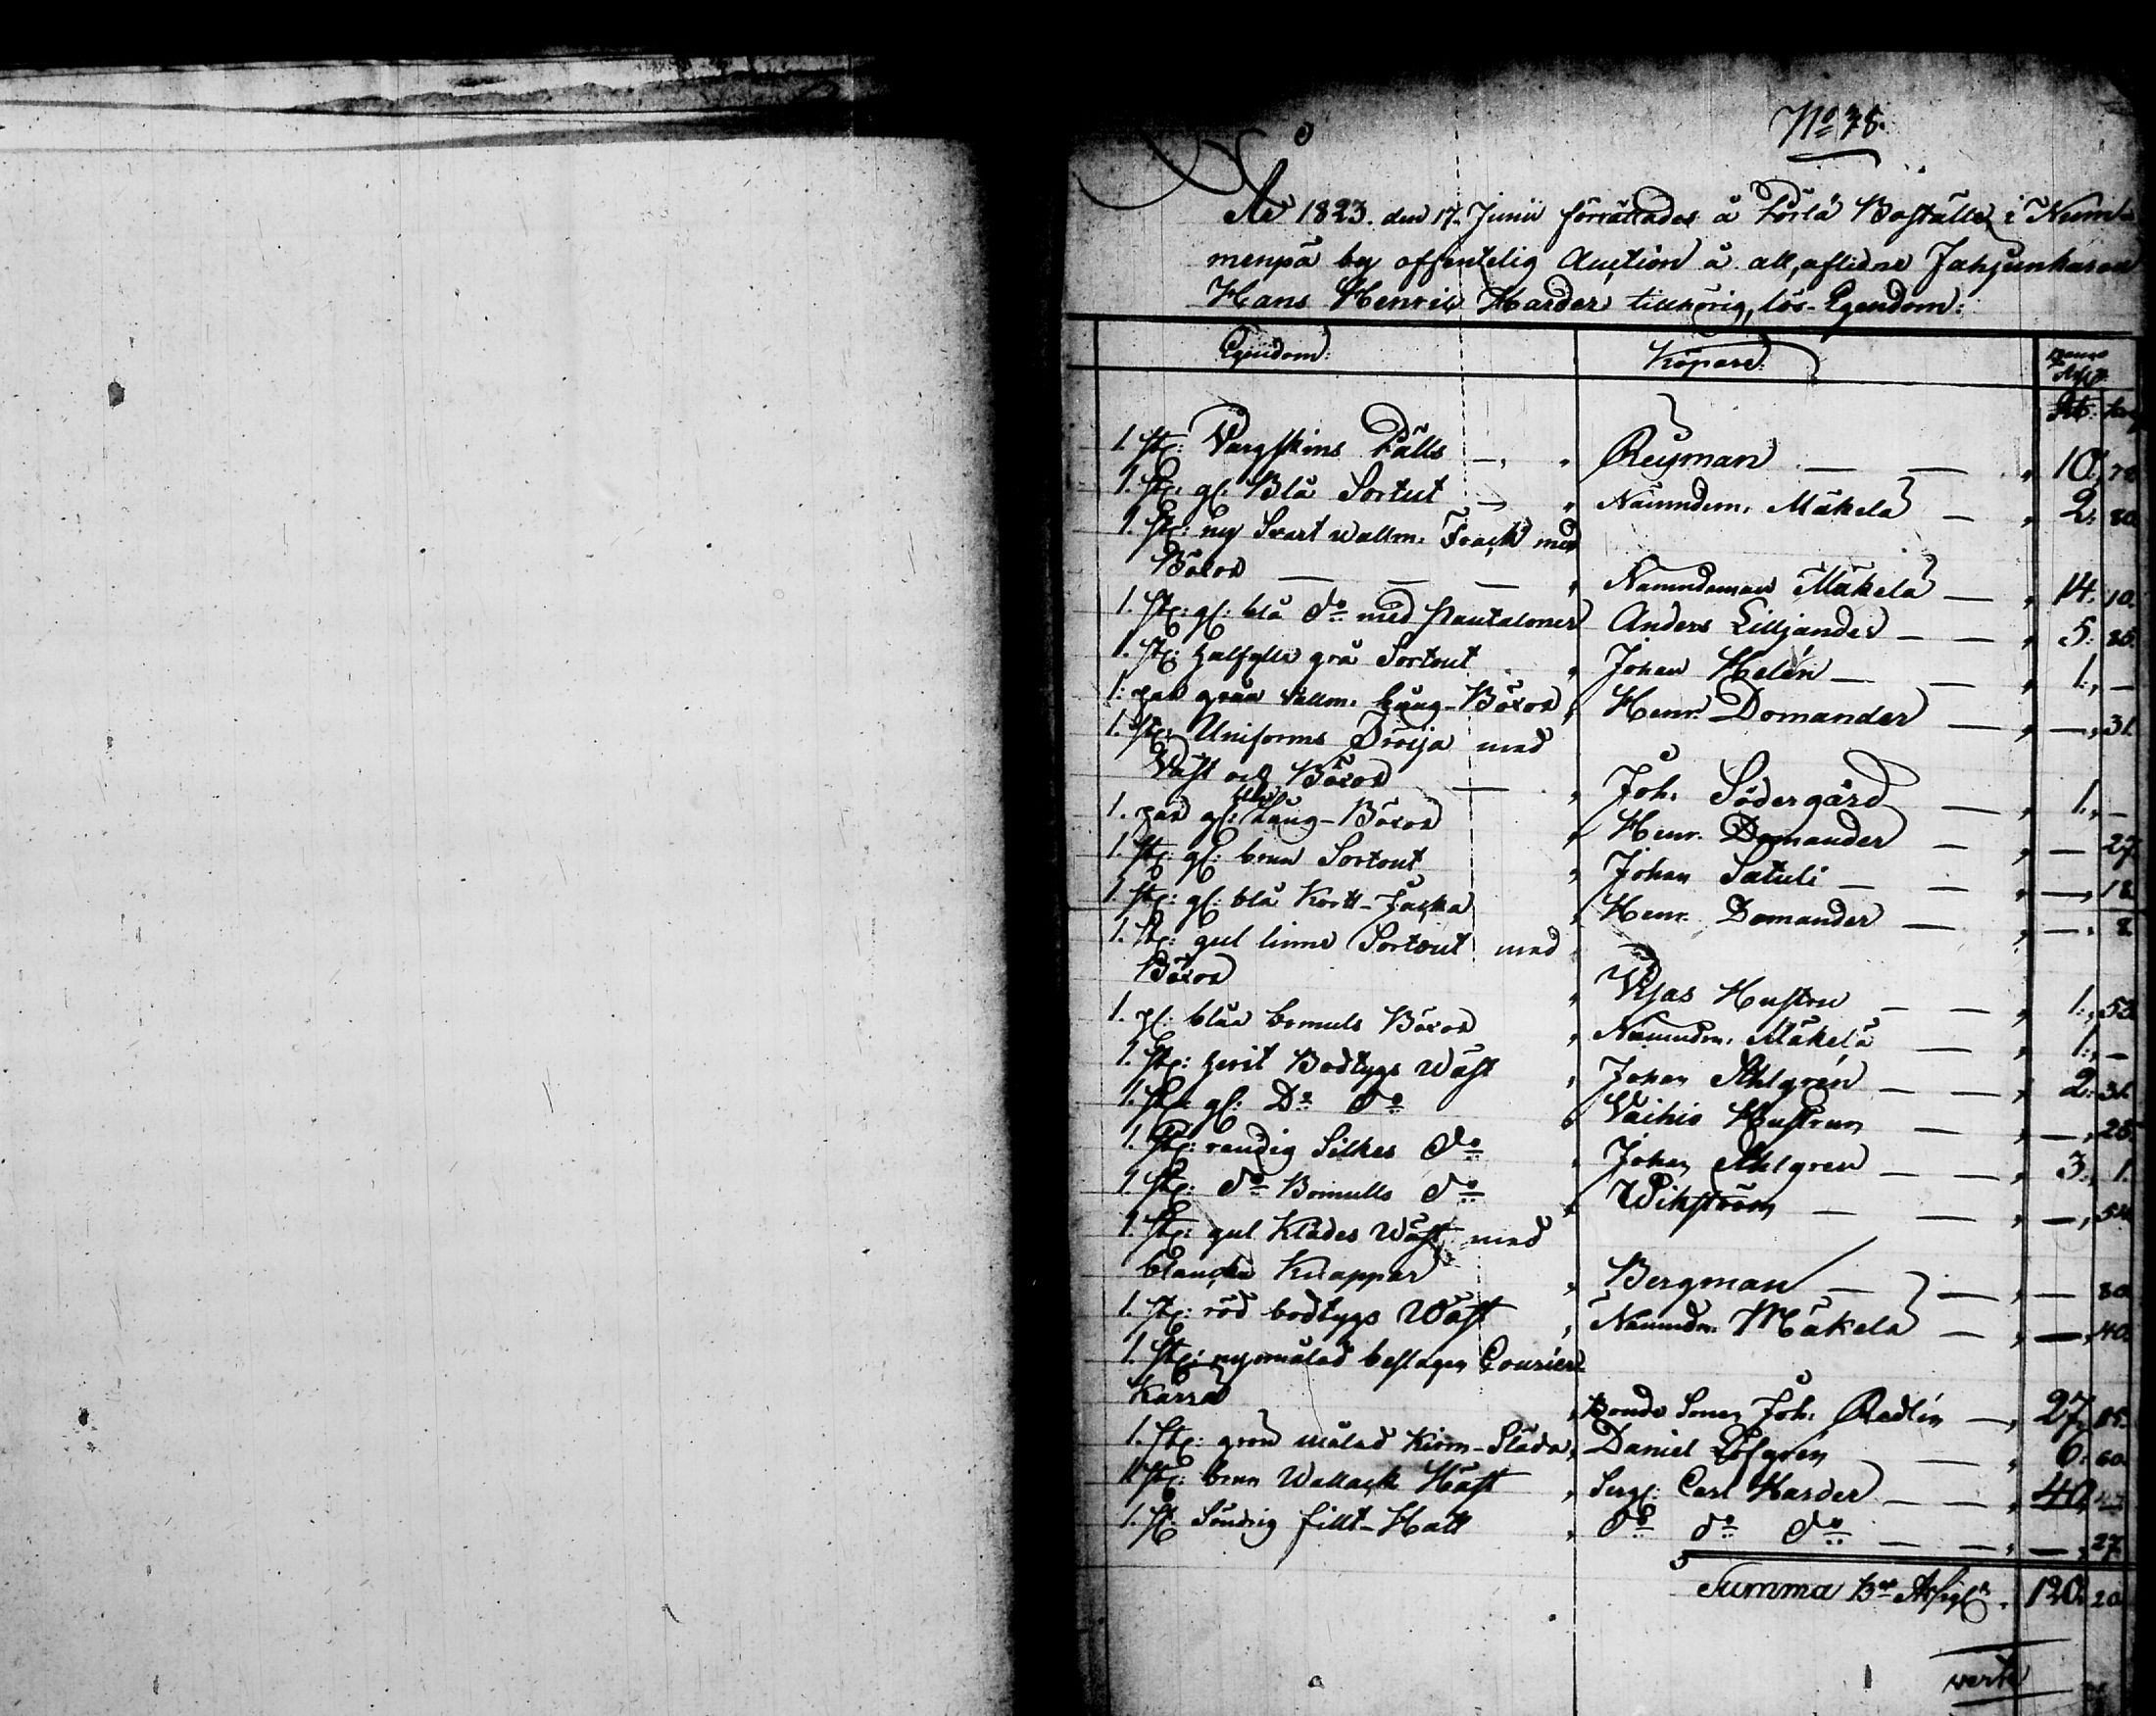 No 78.
År 1823. den 17. Junii förrättades å Pörlä Boställe, i Num-
menpä by offentelig Auction å all, aflidne Fahnjunkaren
Hans Henric Harder tillhörig, lös-Egendom:
Egendom: Köpare: Banco Assign:
Rb: kop
1. st: Vargskins Päls — " Reyman — — " 10, 78
1. st: gl. Blå Sortut — " Nämndem. Mäkelä — " 2. 80.
1. st: ny Svart wallm. Frack med
Böxor — — — " Nämndeman Mäkelä — " 14. 10.
1. st: gl: blå do med Pantaloner Anders Lilljander — — " 5. 85.
1. st: halfylle grå Sortout " Johan Helén — — " 1., —
1. par gråa Vallm. Lång-Böxor " Henr. Domander — " —, 31.
1. st: Uniforms Tröija med
Väst och Böxor — " Joh. Södergård — " 1., —
1. par gl: blå Lång-Böxor " Henr. Domander — " — 27.
1. st: gl: brun Sortout " Johan Satuli — — " —, 18
1. st: gl: blå Kort-Jacka " Henr. Domander — " — . 8.
1. st: gul linne Sortout med
Böxor " Hustru — — " 1., 53.
1. gl: blåa bomuls Böxor " Nämndm. Mäkelä — " 1., —
1. st: hvit Bodtygs Wäst " Johan Ahlgrén — — " 2. 31.
1. st: gl: Do do " Hustrun — " —, 25.
1. st: randig Silkes do " Johan Ahlgren — — " 3., 1.
1. st: do Bomulls do " Wikström — — " —,
1. st: gul Klädes Wäst med
blancka Knappar " Bergman — — " — 80.
1. st: röd bodtygs Wäst " Nämndm. Mäkelä — " —, 40.
1. st: nymålad beslagen Courier-
Kärra " Bonde Sonen Joh. Redlin — " 27. 85.
1. st: grön målad Släda " Daniel Löfgren — " 6. 60.
1. st: brun Wallack Häst " Serg: Carl Harder — — " 40,
1. st. Söndrig fillt-Hatt " do do do — — " —, 27.
Summa Bco Assign. 120. 20
verte